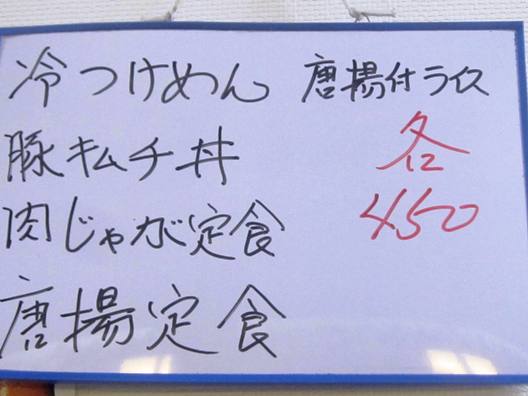 冷つけめん 唐揚付ライス
豚キムチ丼
肉じゃが定食
唐揚定食
各
450